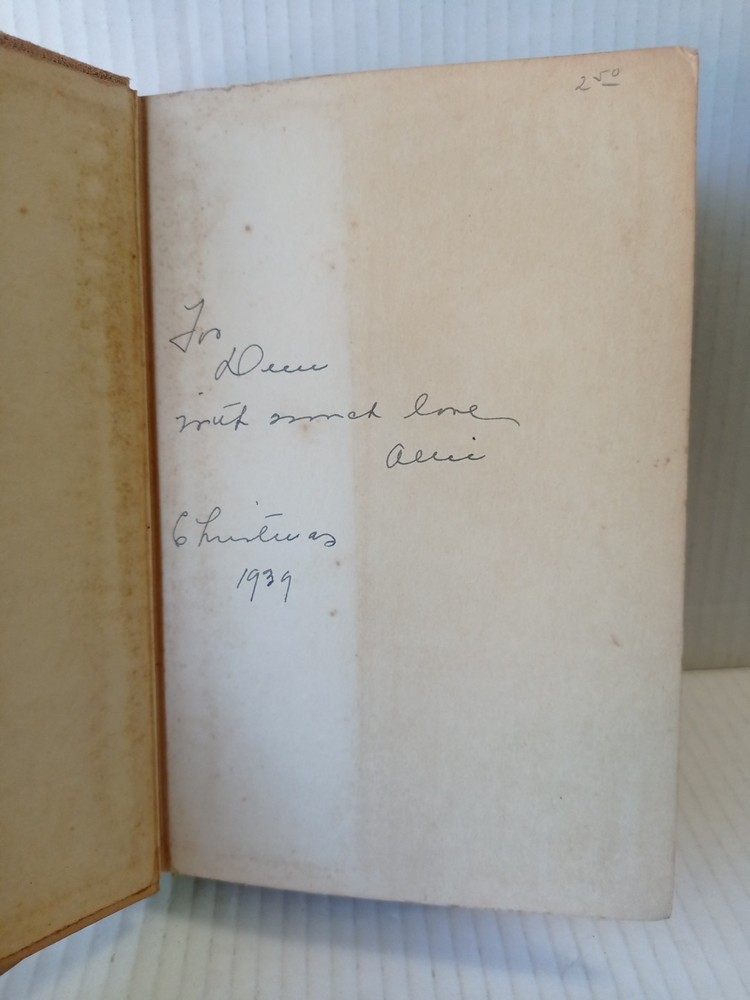 2 50
For
with much love
Allie
Christmas
1939